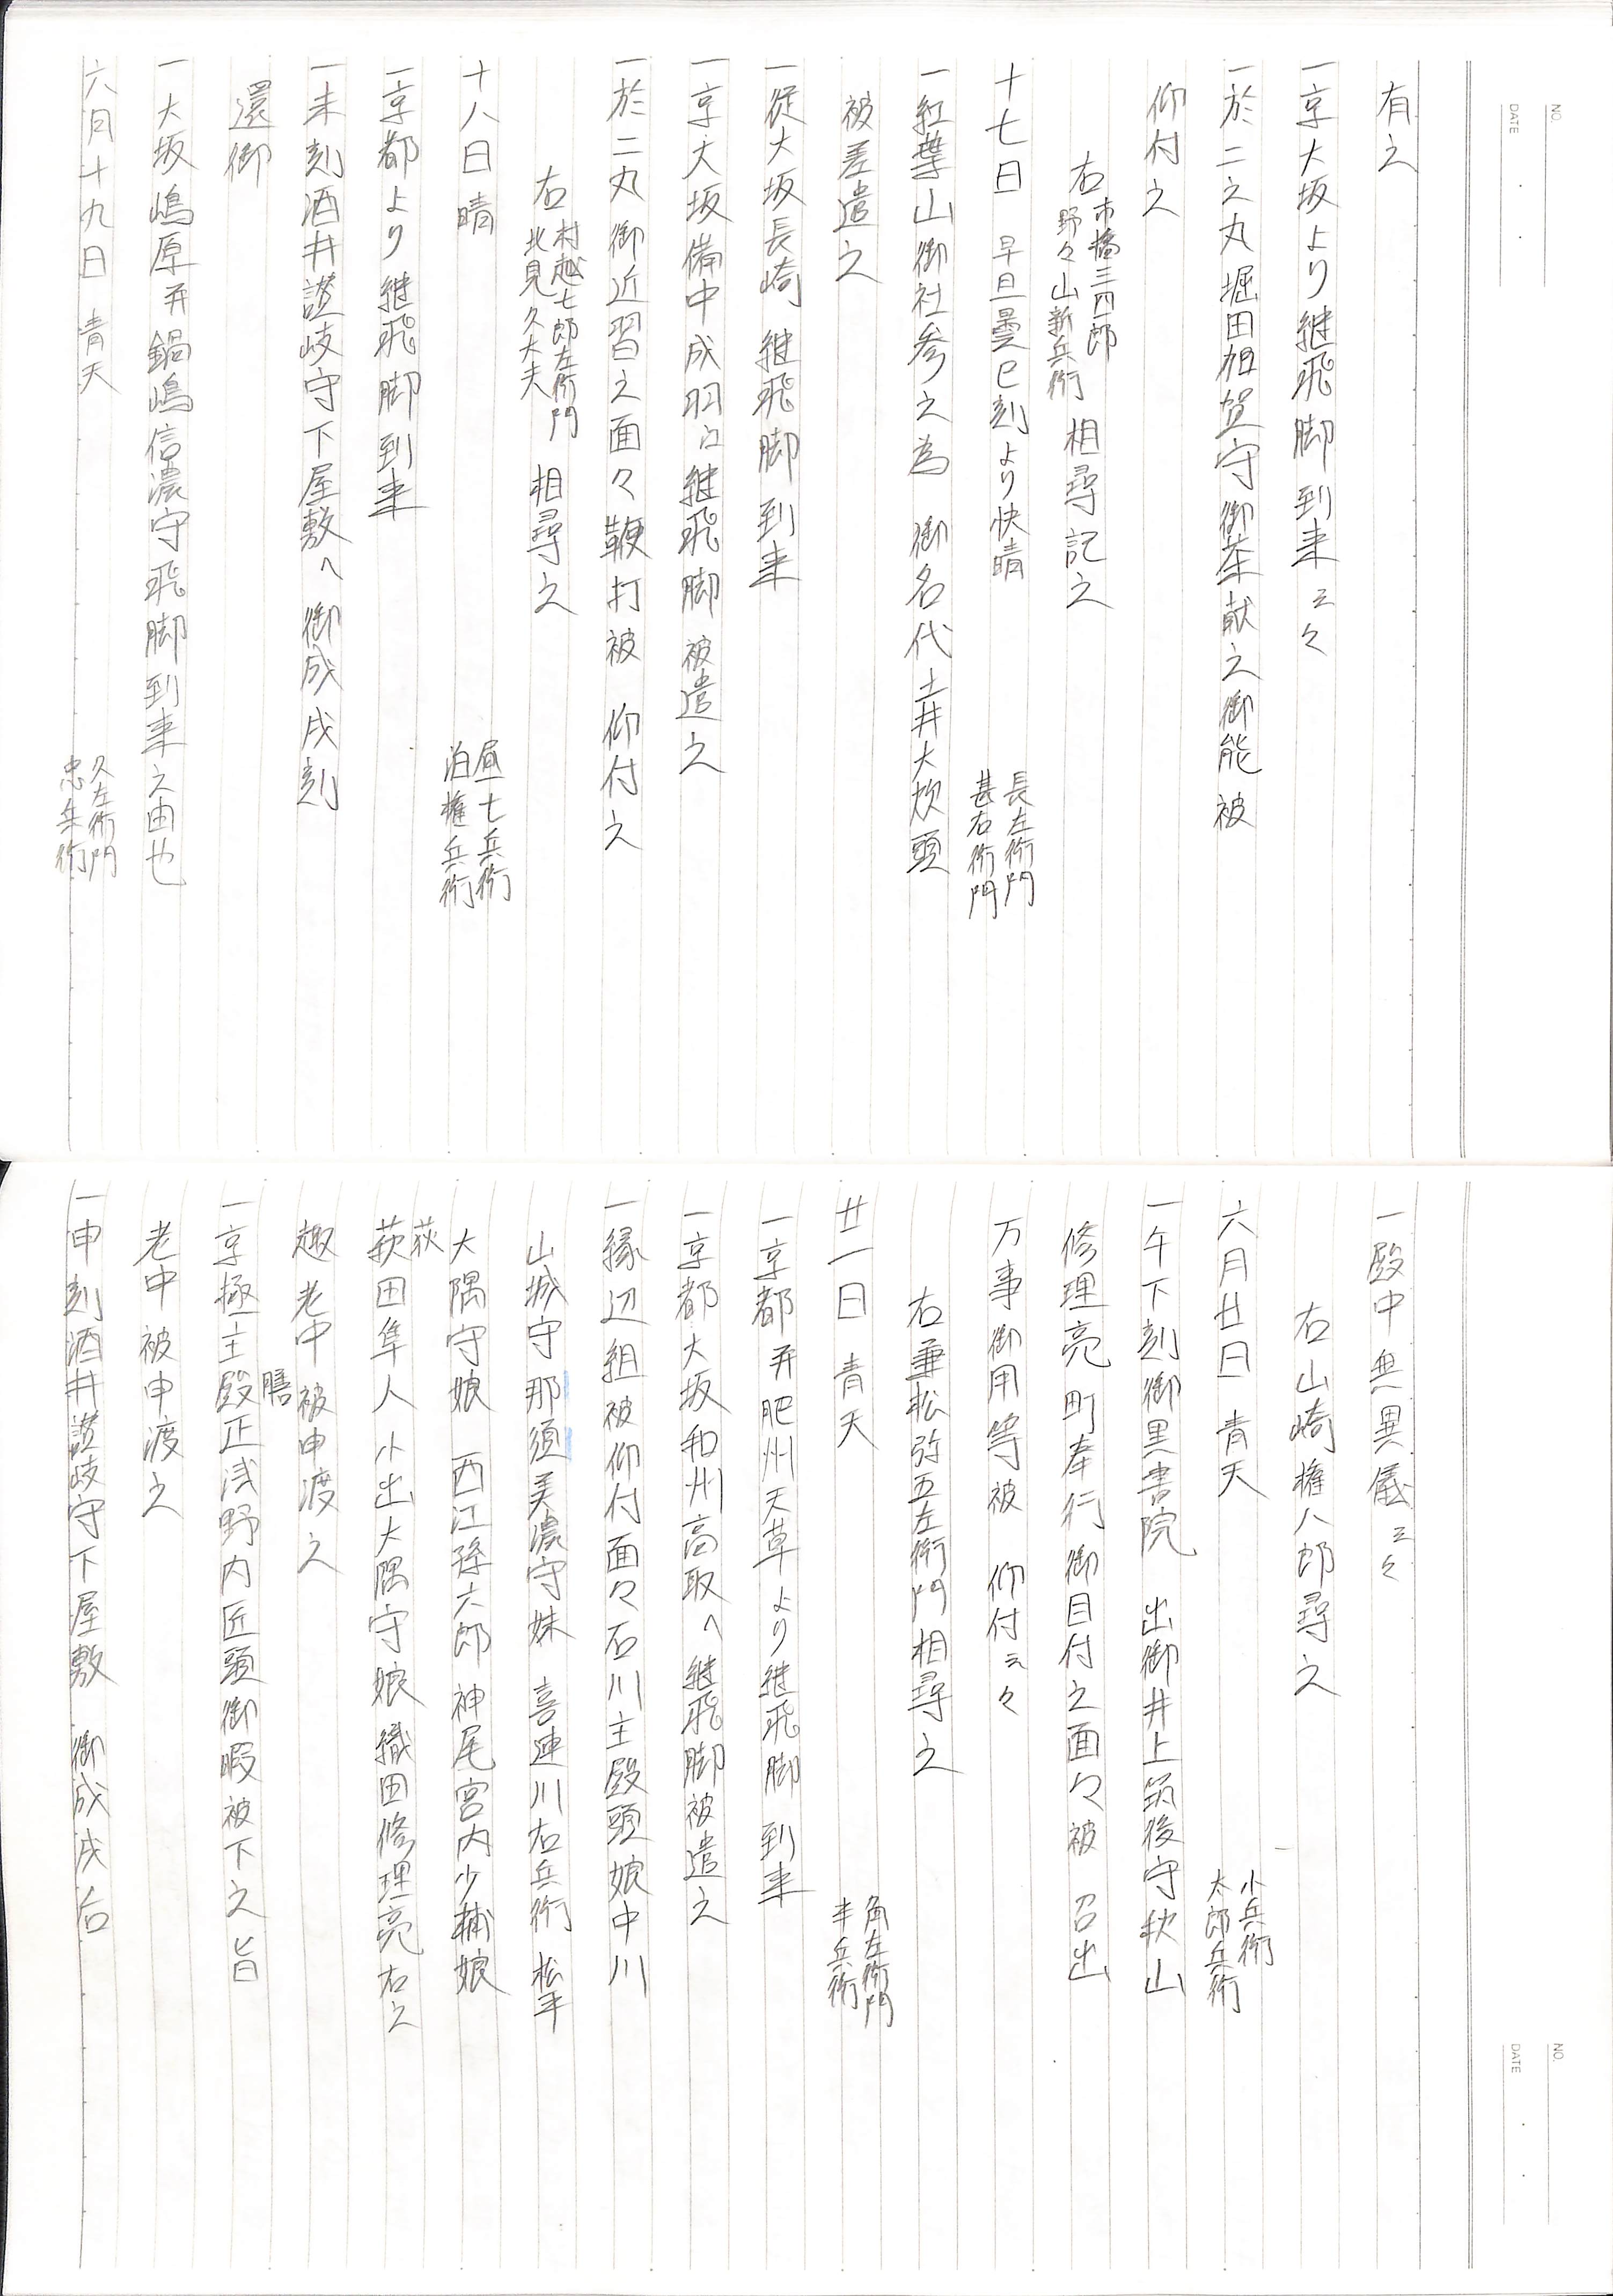 NO.
DATE
有之
一京大坂より継飛脚到来云々
一於二之丸堀田加賀守御茶献之御能被
仰付之
右 市橋三四郎 野々山新兵衛 相尋記之
十七日 早旦曇巳刻より快晴 長左衛門 甚右衛門
一紅葉山御社参之為 御名代土井大炊頭
被差遣之
一従大坂長崎継飛脚到来
一京大坂備中成羽江継飛脚被遣之
一於二丸御近習之面々鞭打被 仰付之
右 村越七郎左衛門 北見久大夫 相尋之
十八日 晴 昼 七兵衛 泊 権兵衛
一京都より継飛脚到来
一未刻酒井讃岐守下屋敷へ御成戌刻
還御
一大坂嶋原并鍋嶋信濃守飛脚到来之由也
六月十九日 青天 久左衛門 忠兵衛
NO.
DATE
一殿中無異儀云々
右山崎権八郎尋之
六月廿日 青天 小兵衛 太郎兵衛
一午下刻御黒書院 出御井上筑後守秋山
修理亮町奉行御目付之面々被 召出
万事御用等被 仰付云々
右兼松弥五左衛門相尋之
廿一日 青天 角左衛門 半兵衛
一京都并肥州天草より継飛脚到来
一京都大坂和州高取へ継飛脚被遣之
一縁辺組被仰付面々石川主殿頭娘中川
山城守那須美濃守妹 喜連川右兵衛 松平
大隅守娘 西江孫六郎 神尾宮内少輔娘
荻
萩田隼人 小出大隅守娘 織田修理亮右之
趣老中被申渡之
膳
一京極主殿正浅野内匠頭御暇被下之旨
老中被申渡之
一申刻酒井讃岐守下屋敷 御成戌后